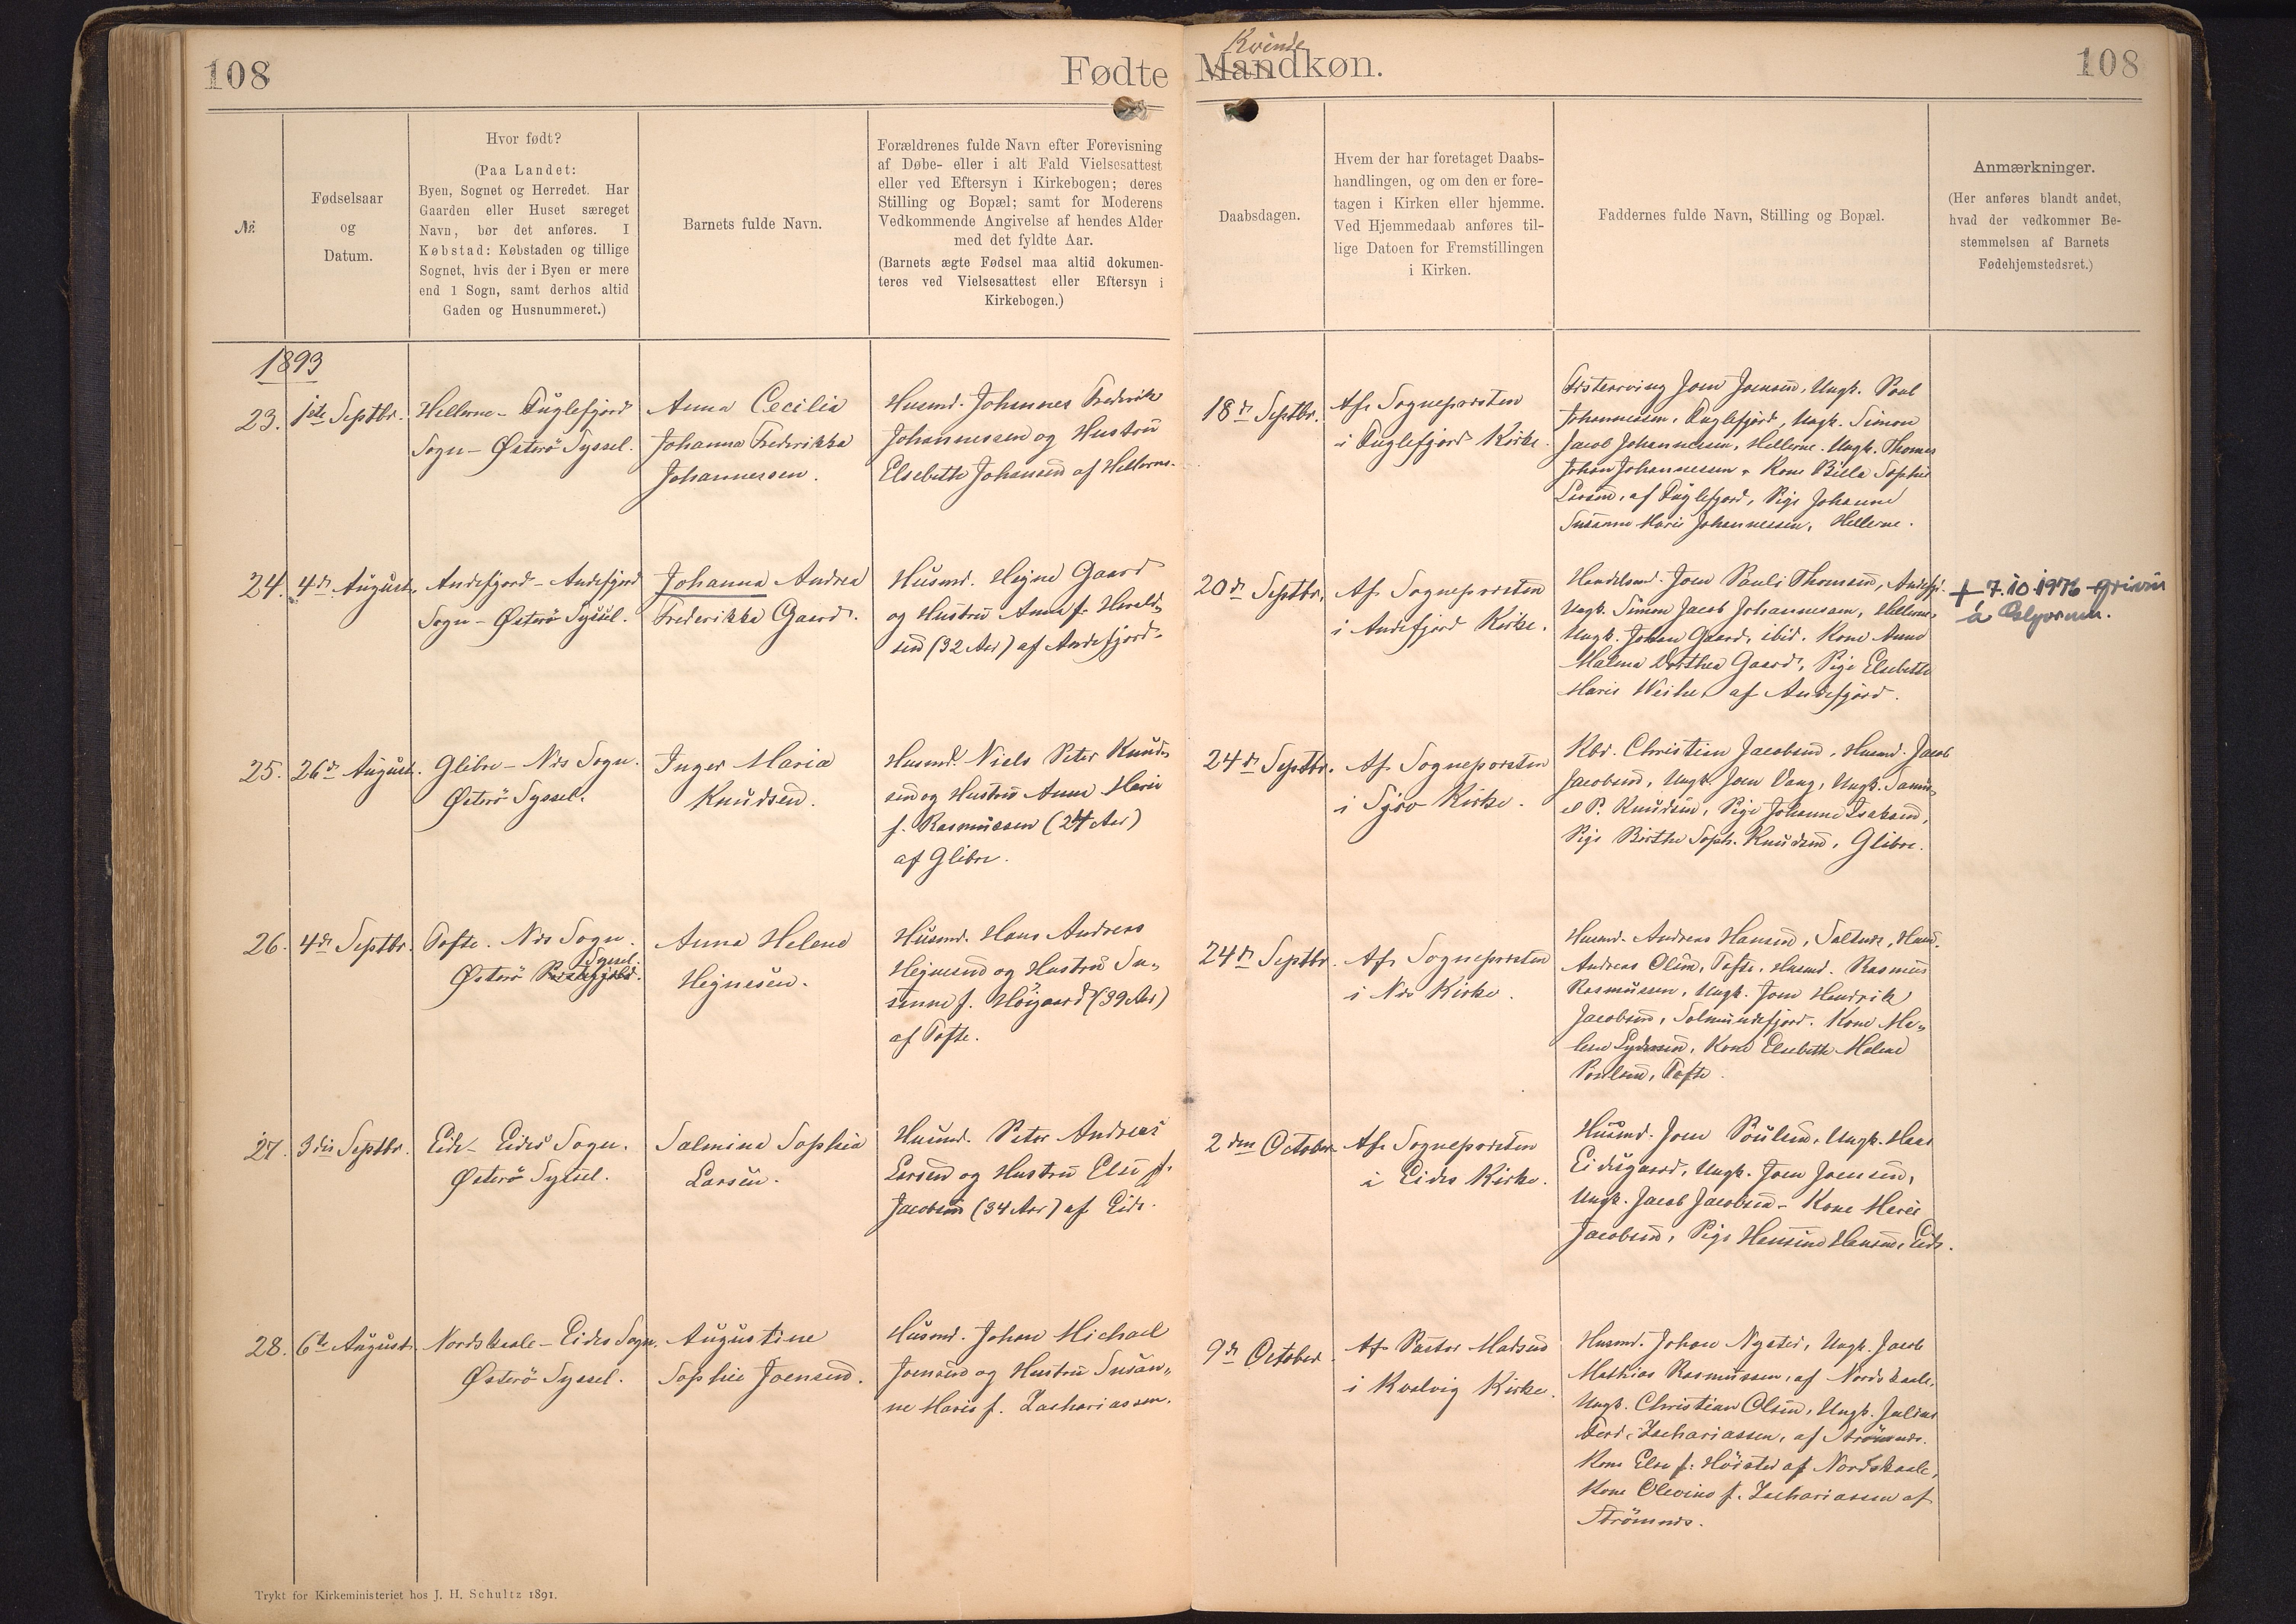 108
Fødte
Kvinde
Mandkøn.
108
№.
Fødselsaar
og
Datum.
Hvor født?
(Paa Landet:
Byen, Sognet og Herredet. Har
Gaarden eller Huset særeget
Navn, bør det anføres. I
Købstad: Købstaden og tillige
Sognet, hvis der i Byen er mere
end 1 Sogn, samt derhos altid
Gaden og Husnummeret.)
Barnets fulde Navn.
Forældrenes fulde Navn efter Forevisning
af Døbe- eller i alt Fald Vielsesattest
eller ved Eftersyn i Kirkebogen; deres
Stilling og Bopæl; samt for Moderens
Vedkommende Angivelse af hendes Alder
med det fyldte Aar.
(Barnets ægte Fødsel maa altid dokumen-
teres ved Vielsesattest eller Eftersyn i
Kirkebogen.)
Daabsdagen.
Hvem der har foretaget Daabs-
handlingen, og om den er fore-
tagen i Kirken eller hjemme.
Ved Hjemmedaab anføres til-
lige Datoen for Fremstillingen
i Kirken.
Faddernes fulde Navn, Stilling og Bopæl.
Anmærkninger.
(Her anføres blandt andet,
hvad der vedkommer Be-
stemmelsen af Barnets
Fødehjemstedsret.)
1893
23.
1ste Septbr.
Hellerne - Fuglefjord
Sogn - Østerö Syssel.
Anna Cecilia
Johanna Frederikka
Johannessen.
Husmd. Johannes Frederik
Johannessen og Hustru
Elsebeth Johansen af Hellerne.
18de Septbr.
Af Sognepresten
i Fuglefjord Kirke.
Joen Joensen, Ungk. Poul
Johannesen, Fuglefjord, Ungk. Simon
Jacob Johannesen, Hellerne. Ungk. Thomas
Johan Johannessen, Kone Billa Sophie
af Fuglefjord, Pige Johanne
Susanne Marie Johannessen, Hellerne.
24.
4de August.
Andefjord - Andefjord
Sogn - Østerö Syssel.
Johanna Andrea
Frederikka Gaard.
Husmd. Hejne Gaard
og Hustru Anna f. Herald-
sen (32 Aar) af Andefjord.
20de Septbr.
Af Sognepresten
i Andefjord Kirke.
Handelsmd. Joen Pauli Thomsen, Andefj.
Ungk. Simon Jacob Johannesen, Hellerne,
Ungk. Johan Gaard, ibid. Kone Anna
Malena Dorthea Gaard, Pige Elsebeth
Marie Weihe, af Andefjord.
+ 7.10.1976 grivin
á
25.
26de August.
Glibre - Næs Sogn.
Østerö Syssel.
Inger Maria
Knudsen.
Husmd. Niels Peter Knud-
sen og Hustru Anne Marie
f. Rasmussen (24 Aar)
af Glibre.
24de Septbr.
Af Sognepresten
i Sjov Kirke.
Kbd. Christian Jacobsen, Husmd. Jacob
Jacobsen, Ungk. Joen Vang, Ungk. Samu-
el P. Knudsen, Pige Johanne Isaksen,
Pige Birthe Soph. Knudsen, Glibre.
26.
4de Septbr.
Tofte. Næs Sogn.
Syssel.
Østerö Præstegjeld.
Anna Helene
Hejnesen.
Husmd. Hans Andreas
Hejnesen og Hustru Su-
sanne f. Höjgaard (39 Aar)
af Tofte.
24de Septbr.
Af Sognepresten
i Næs Kirke.
Husmd. Andreas Hansen, Saltnæs, Husmd.
Andreas Olsen, Tofte, Husmd. Rasmus
Rasmussen, Ungk. Joen Hendrik
Jacobsen, Solmundefjord. Kone Ma-
lene Lydersen, Kone Elsebeth Malene
Poulsen, Tofte.
27.
3die Septbr.
Eide - Eides Sogn.
Østerö Syssel.
Salmine Sophia
Larsen.
Husmd. Peter Andreas
Larsen og Hustru Else f.
Jacobsen (34 Aar) af Eide.
2den October.
Af Sognepresten
i Eides Kirke.
Husmd. Joen Poulsen, Ungk. Hans
Eidesgaard, Ungk. Joen Joensen,
Ungk. Jacob Jacobsen - Kone Marie
Jacobsen, Pige Hansine Hansen, Eide.
28.
6te August.
Nordskaale - Eides Sogn.
Østerö Syssel.
Augustine
Sophie Joensen.
Husmd. Johan Michael
Joensen og Hustru Susan-
ne Marie f. Zachariassen.
9de October.
Af Pastor Madsen
i Kvalvig Kirke.
Husmd. Johan Nysted, Ungk. Jacob
Mathias Rasmussen, af Nordskaale,
Ungk. Christian Olsen, Ungk. Julius
Ferd. Zachariassen, af Strömnæs.
Kone Else f. Hörsted af Nordskaale,
Kone Olevine f. Zachariassen af
Strömnæs.
Trykt for Kirkeministeriet hos J. H. Schultz 1891.